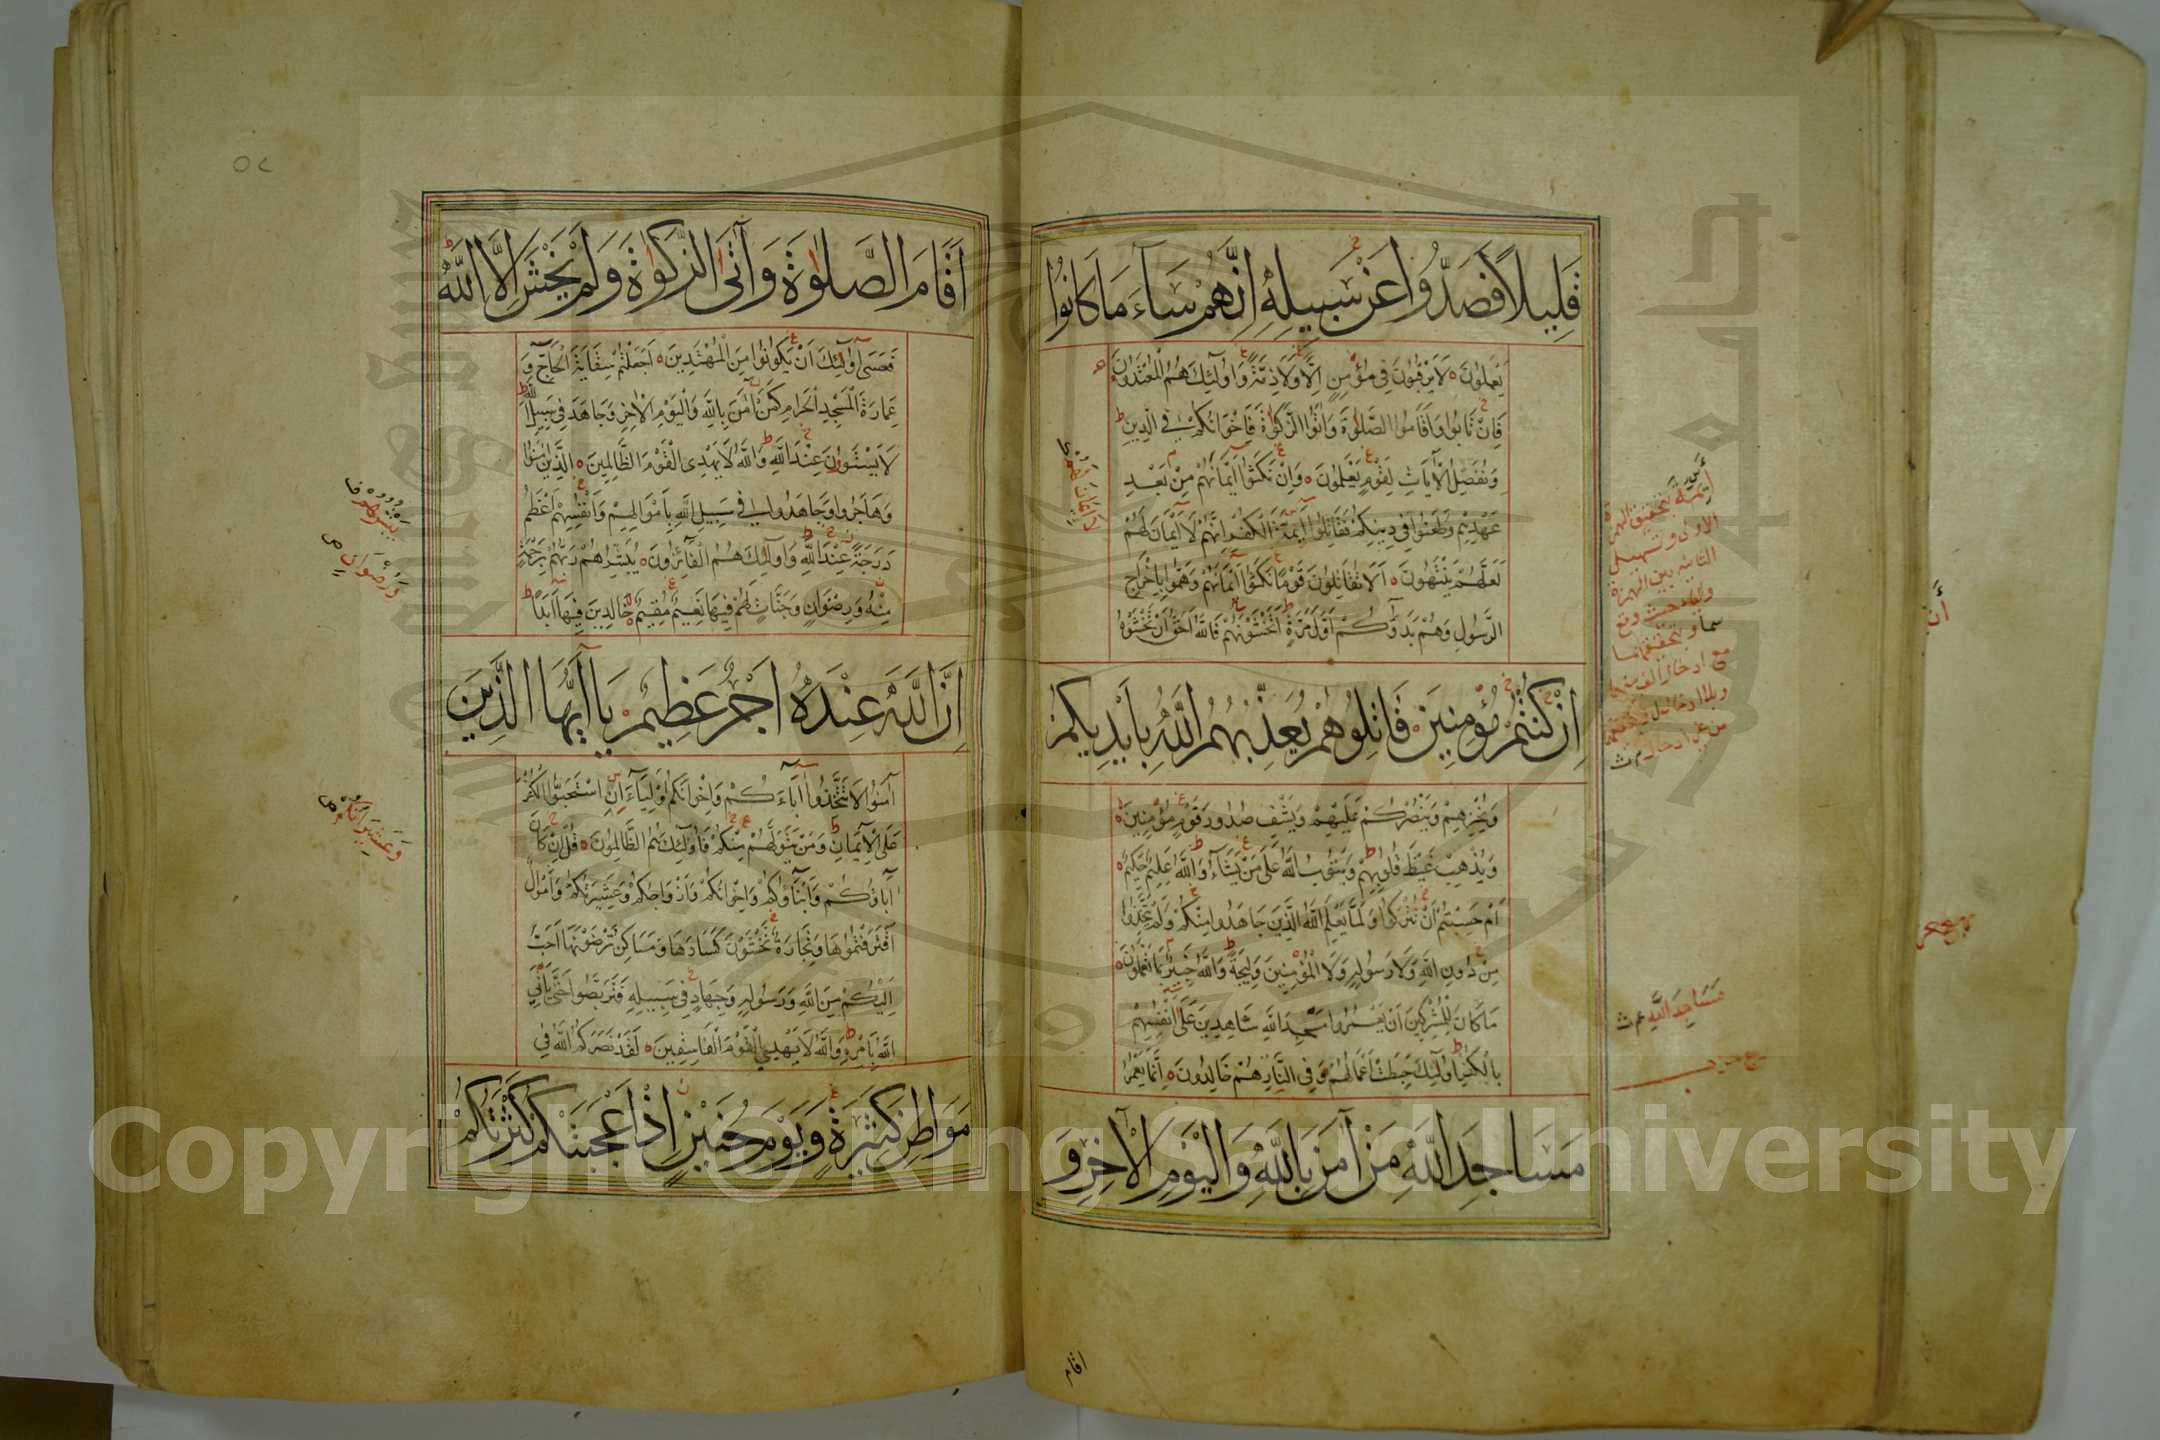 قَلِيلًا فَصَدُّوا عَنْ سَبِيلِهِ اِنَّهُمْ سَآءَ مَا كَانُوا
يَعْمَلُونَ لَا يَرْقُبُونَ فِي مُؤْمِنٍ اِلًّا وَلَا ذِمَّةً وَاُولٰٓئِكَ هُمُ الْمُعْتَدُونَ
فَاِنْ تَابُوا وَاَقَامُوا الصَّلٰوةَ وَاٰتَوُا الزَّكٰوةَ فَاِخْوَانُكُمْ فِي الدِّينِ ط
وَنُفَصِّلُ الْاٰيَاتِ لِقَوْمٍ يَعْلَمُونَ وَاِنْ نَكَثُوٓا اَيْمَانَهُمْ مِنْ بَعْدِ
عَهْدِهِمْ وَطَعَنُوا فِي دِينِكُمْ فَقَاتِلُوٓا اَئِمَّةَ الْكُفْرِ اِنَّهُمْ لَآ اَيْمَانَ لَهُمْ
لَعَلَّهُمْ يَنْتَهُونَ اَلَا تُقَاتِلُونَ قَوْمًا نَكَثُوٓا اَيْمَانَهُمْ وَهَمُّوا بِاِخْرَاجِ
الرَّسُولِ وَهُمْ بَدَؤُكُمْ اَوَّلَ مَرَّةٍ ط اَتَخْشَوْنَهُمْ فَاللّٰهُ اَحَقُّ اَنْ تَخْشَوْهُ
اِنْ كُنْتُمْ مُؤْمِنِينَ قَاتِلُوهُمْ يُعَذِّبْهُمُ اللّٰهُ بِاَيْدِيكُمْ
وَيُخْزِهِمْ وَيَنْصُرْكُمْ عَلَيْهِمْ وَيَشْفِ صُدُورَ قَوْمٍ مُؤْمِنِينَ
وَيُذْهِبْ غَيْظَ قُلُوبِهِمْ ط وَيَتُوبُ اللّٰهُ عَلَى مَنْ يَشَآءُ ط وَاللّٰهُ عَلِيمٌ حَكِيمٌ
اَمْ حَسِبْتُمْ اَنْ تُتْرَكُوا وَلَمَّا يَعْلَمِ اللّٰهُ الَّذِينَ جَاهَدُوا مِنْكُمْ وَلَمْ يَتَّخِذُوا
مِنْ دُونِ اللّٰهِ وَلَا رَسُولِهِ وَلَا الْمُؤْمِنِينَ وَلِيجَةً ط وَاللّٰهُ خَبِيرٌ بِمَا تَعْمَلُونَ
مَا كَانَ لِلْمُشْرِكِينَ اَنْ يَعْمُرُوا مَسٰجِدَ اللّٰهِ شَاهِدِينَ عَلَى اَنْفُسِهِمْ
بِالْكُفْرِ ط اُولٰٓئِكَ حَبِطَتْ اَعْمَالُهُمْ وَفِي النَّارِ هُمْ خَالِدُونَ اِنَّمَا يَعْمُرُ
مَسَاجِدَ اللّٰهِ مَنْ اٰمَنَ بِاللّٰهِ وَالْيَوْمِ الْاٰخِرِ وَ
اقام
اَئِمَّةَ بتحقيق الهمزة
الاولى وتسهيل
الثانية بين الهمزة
والياء حيث وقع
سما وبتحقيقهما
مع ادخال الف بينهما
مَسَاجِدَ اللّٰهِ
اَقَامَ الصَّلٰوةَ وَاٰتَى الزَّكٰوةَ وَلَمْ يَخْشَ اِلَّا اللّٰهَ ط
فَعَسَى اُولٰٓئِكَ اَنْ يَكُونُوا مِنَ الْمُهْتَدِينَ اَجَعَلْتُمْ سِقَايَةَ الْحَآجِّ وَ
عِمَارَةَ الْمَسْجِدِ الْحَرَامِ كَمَنْ اٰمَنَ بِاللّٰهِ وَالْيَوْمِ الْاٰخِرِ وَجَاهَدَ فِي سَبِيلِ اللّٰهِ ط
لَا يَسْتَوُونَ عِنْدَ اللّٰهِ ط وَاللّٰهُ لَا يَهْدِي الْقَوْمَ الظَّالِمِينَ الَّذِينَ اٰمَنُوا
وَهَاجَرُوا وَجَاهَدُوا فِي سَبِيلِ اللّٰهِ بِاَمْوَالِهِمْ وَاَنْفُسِهِمْ اَعْظَمُ
دَرَجَةً عِنْدَ اللّٰهِ ط وَاُولٰٓئِكَ هُمُ الْفَآئِزُونَ يُبَشِّرُهُمْ رَبُّهُمْ بِرَحْمَةٍ
مِنْهُ وَرِضْوَانٍ وَجَنَّاتٍ لَهُمْ فِيهَا نَعِيمٌ مُقِيمٌ خَالِدِينَ فِيهَآ اَبَدًا ط
اِنَّ اللّٰهَ عِنْدَهُ اَجْرٌ عَظِيمٌ يَآ اَيُّهَا الَّذِينَ
اٰمَنُوا لَا تَتَّخِذُوٓا اٰبَآءَكُمْ وَاِخْوَانَكُمْ اَوْلِيَآءَ اِنِ اسْتَحَبُّوا الْكُفْرَ
عَلَى الْاِيمَانِ ط وَمَنْ يَتَوَلَّهُمْ مِنْكُمْ فَاُولٰٓئِكَ هُمُ الظَّالِمُونَ قُلْ اِنْ كَانَ
اٰبَآؤُكُمْ وَاَبْنَآؤُكُمْ وَاِخْوَانُكُمْ وَاَزْوَاجُكُمْ وَعَشِيرَتُكُمْ وَاَمْوَالٌ
اقْتَرَفْتُمُوهَا وَتِجَارَةٌ تَخْشَوْنَ كَسَادَهَا وَمَسَاكِنُ تَرْضَوْنَهَآ اَحَبَّ
اِلَيْكُمْ مِنَ اللّٰهِ وَرَسُولِهِ وَجِهَادٍ فِي سَبِيلِهِ فَتَرَبَّصُوا حَتّٰى يَاْتِيَ
اللّٰهُ بِاَمْرِهِ ط وَاللّٰهُ لَا يَهْدِي الْقَوْمَ الْفَاسِقِينَ لَقَدْ نَصَرَكُمُ اللّٰهُ فِي
مَوَاطِنَ كَثِيرَةٍ وَيَوْمَ حُنَيْنٍ اِذْ اَعْجَبَتْكُمْ كَثْرَتُكُمْ
يَبْشُرُهُمْ ف
وَرُضْوَانٍ ص
وَعَشِيرَاتُكُمْ ص
Copyright © King Saud University